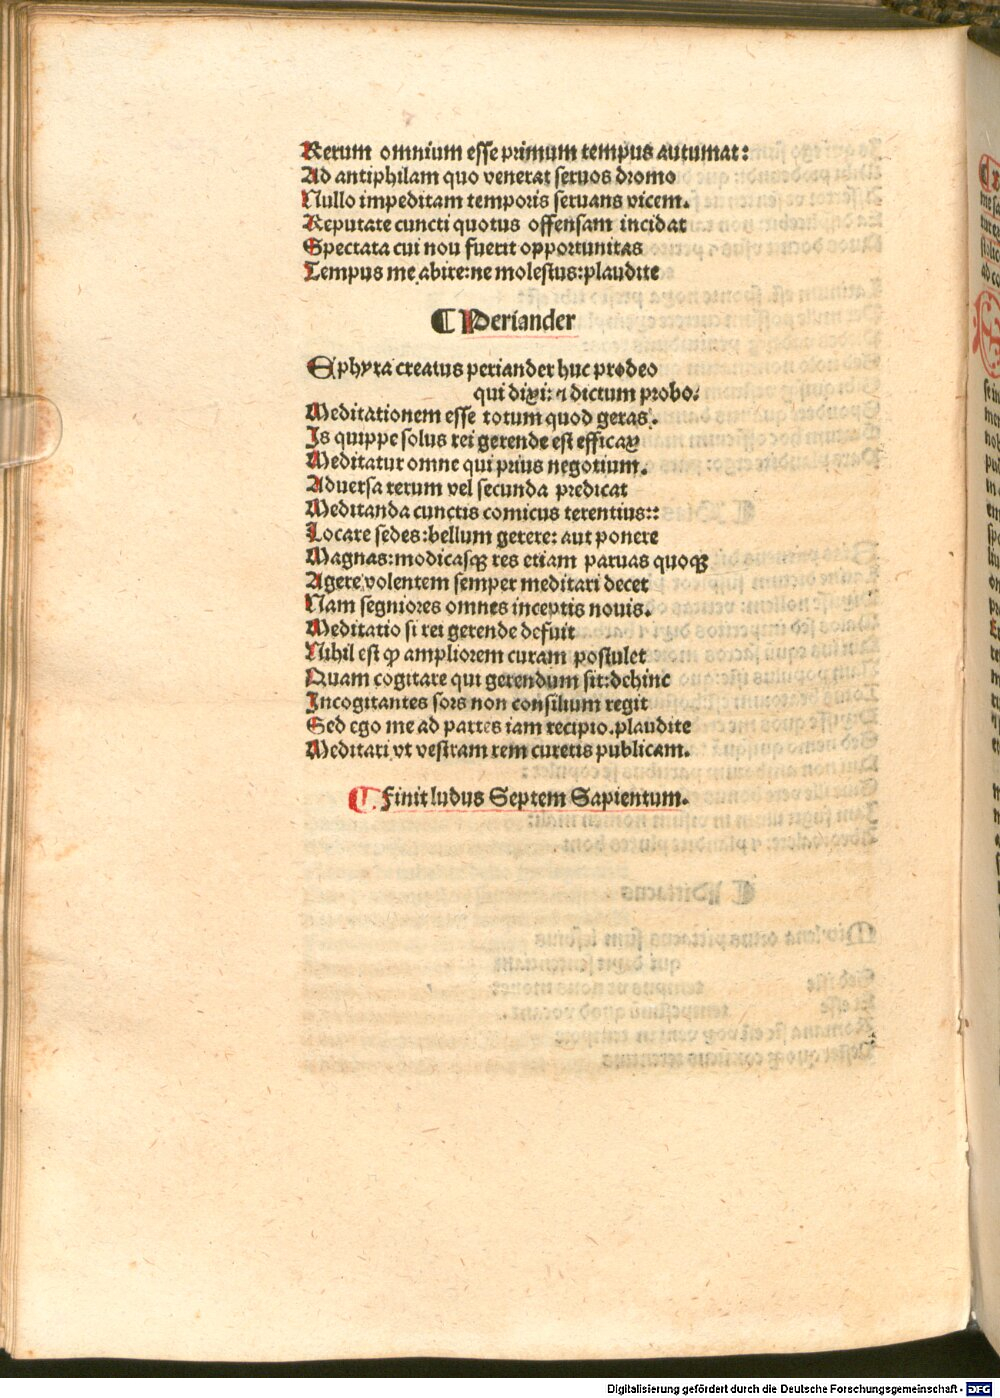 Rerum omnium esse primum tempus autumat:
Ad antiphilam quo venerat seruos dromo
Nullo impeditam temporis seruans vicem.
Reputate cuncti quotus offensam incidat
Spectata cui nou fuerit opportunitas
Tempus me abire:ne molestus:plaudite
¶ Periander
Ephyra creatus periander huc prodeo
qui dixi: ⁊ dictum probo:
Meditationem esse totum quod geras.
Is quippe solus rei gerende est efficax
Meditatur omne qui prius negotium.
Aduersa rerum vel secunda predicat
Meditanda cunctis comicus terentius::
Locare sedes:bellum gerere: aut ponere
Magnas:modicasqꝫ res etiam paruas quoqꝫ
Agere volentem semper meditari decet
Nam segniores omnes inceptis nouis.
Meditatio si rei gerende defuit
Nihil est ꝙ ampliorem curam postulet
Quam cogitare qui gerendum sit:dehinc
Incogitantes sors non consilium regit
Sed ego me ad partes iam recipio.plaudite
Meditari vt vestram rem curetis publicam.
¶ Finit ludus Septem Sapientum.
Digitalisierung gefördert durch die Deutsche Forschungsgemeinschaft - DFG